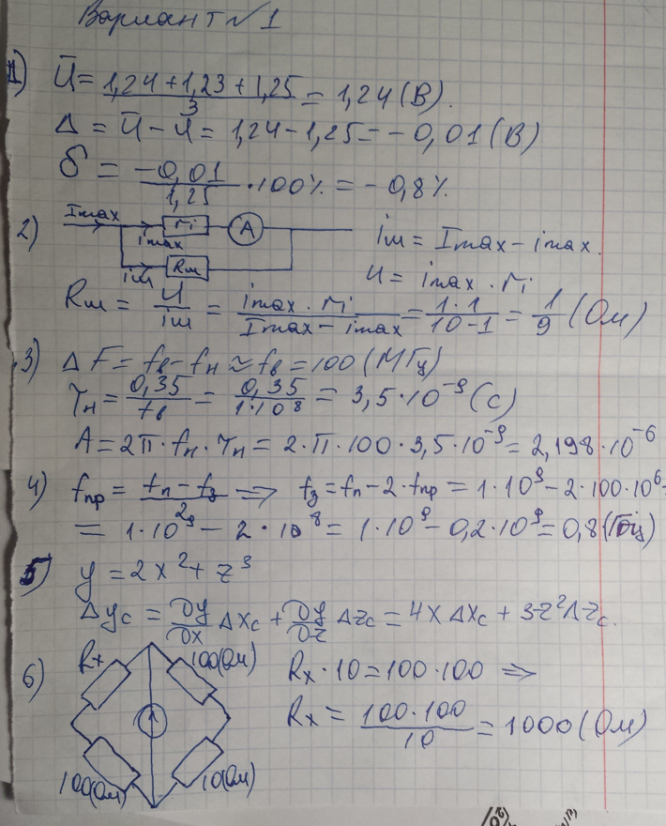 Вариант №1
1) Ū = (1,24 + 1,23 + 1,25)/3 = 1,24 (В).
Δ = Ū - U = 1,24 - 1,25 = -0,01 (В)
δ = -0,01/1,25 · 100% = -0,8%
2) Imax imax ri A iш = Imax - imax.
iш Rш U = imax · ri
Rш = U/iш = imax · ri/(Imax - imax) = 1·1/(10-1) = 1/9 (Ом)
3) ΔF = fв - fн ≈ fв = 100 (МГц)
τн = 0,35/fв = 0,35/1·10⁸ = 3,5·10⁻⁹ (с)
A = 2π · fп · τн = 2·π·100·3,5·10⁻⁹ = 2,198·10⁻⁶
4) fпр = (fп - fз)/2 => fз = fп - 2·fпр = 1·10⁹ - 2·100·10⁶ =
= 1·10⁹ - 2·10⁸ = 1·10⁹ - 0,2·10⁹ = 0,8 (Ггц)
5) y = 2x² + z³
Δyc = ∂y/∂x Δxc + ∂y/∂z Δzc = 4x Δxc + 3z² Δzc.
6) Rx 100(Ом) Rx · 10 = 100·100 =>
100(Ом) 10(Ом) Rx = 100·100/10 = 1000 (Ом)